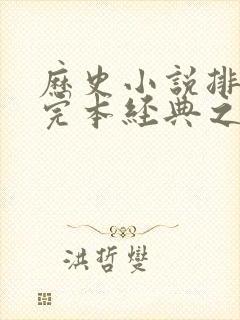 歷史小說排
完本經典之
洪哲燮